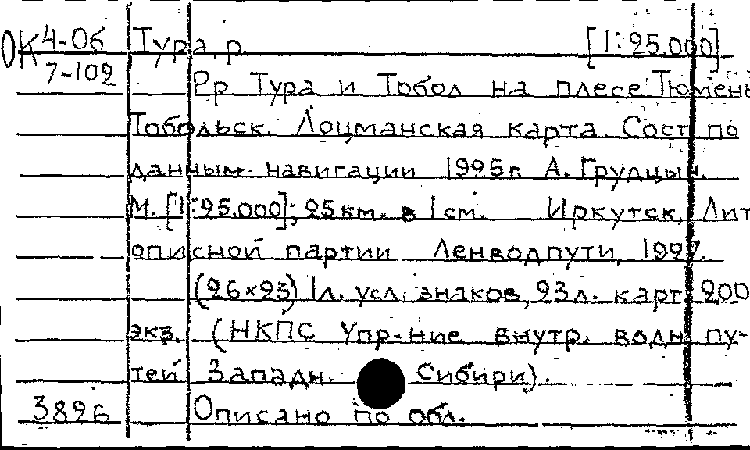 ОК 4-Об Тура, р. [1:25.000]
7-102 Рр Тура и Тобол на плесе: Тюмень
Тобольск. Лоцманская карта. Сост. по
данным навигации 1925г. А. Грудцын.
М. [1:25.000]; 25км. в 1см. Иркутск, Лит.
описной партии Ленводпути, 1927.
(26×23) 1л. усл. знаков, 23л. карт. 200
экз. (НКПС Упр-ние внутр. водн. пу-
тей Западн. Сибири).
3896 Описано по обл.